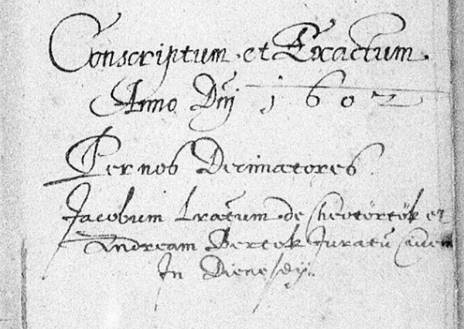 Conscriptum et Exactum.
Anno Dnj 1602
Per nos Decimatores
Jacobum de Cheötörtök et
Andream Bertok Juratū Civem
In Dienesdÿ.